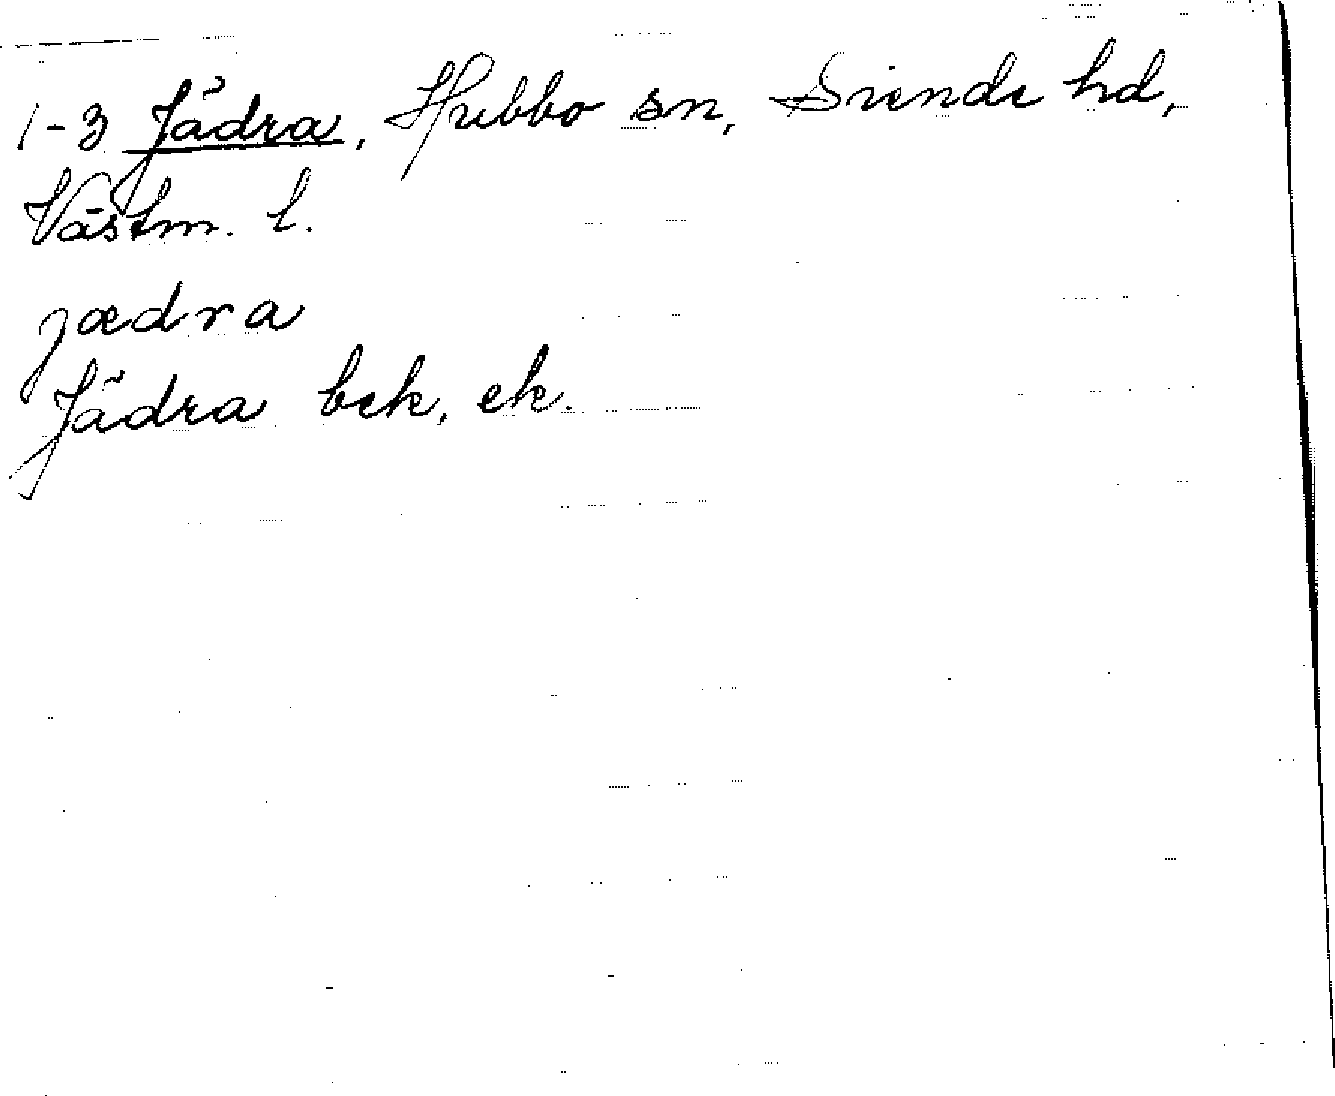 1-3 Jädra, Hubbo sn, Siende hd,
Västm. l.
jædra
Jädra bek, ek.